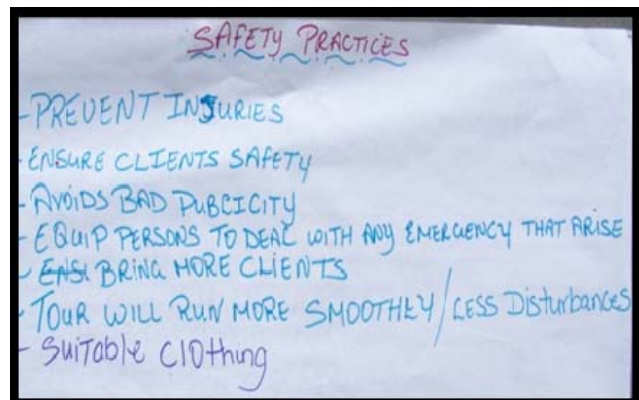 SAFETY PRACTICES
- PREVENT INJURIES
- ENSURE CLIENTS SAFETY
- AVOIDS BAD PUBLICITY
- EQUIP PERSONS TO DEAL WITH ANY EMERGENCY THAT ARISE
- BRING MORE CLIENTS
- TOUR WILL RUN MORE SMOOTHLY/LESS DISTURBANCES
- SUITABLE CLOTHING